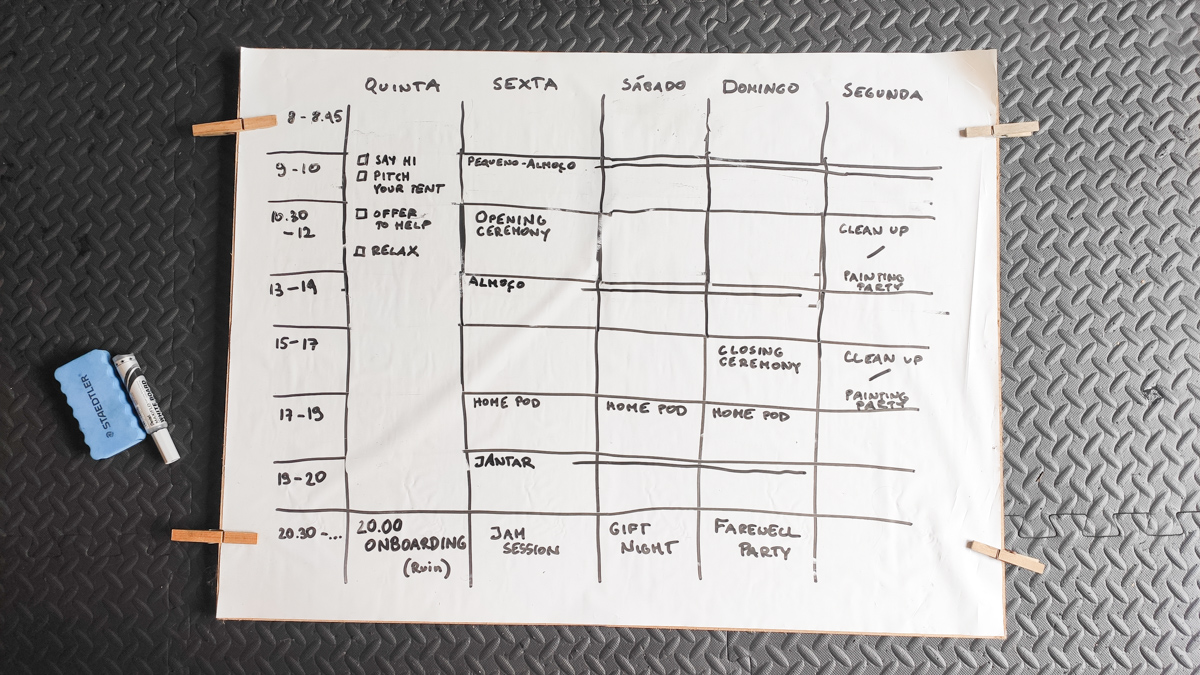 QUINTA SEXTA SÁBADO DOMINGO SEGUNDA
8-8.45
9-10
☐ SAY HI
☐ PITCH
YOUR TENT
PEQUENO-ALMOÇO
10.30
-12
☐ OFFER
TO HELP
☐ RELAX
OPENING
CEREMONY
CLEAN UP
/
PAINTING
PARTY
13-14
ALMOÇO
15-17
CLOSING
CEREMONY
CLEAN UP
/
PAINTING
PARTY
17-19
HOME POD
HOME POD
HOME POD
19-20
JANTAR
20.30-...
20.00
ONBOARDING
(RUIN)
JAM
SESSION
GIFT
NIGHT
FAREWELL
PARTY
STAEDTLER
WHITE BOARD